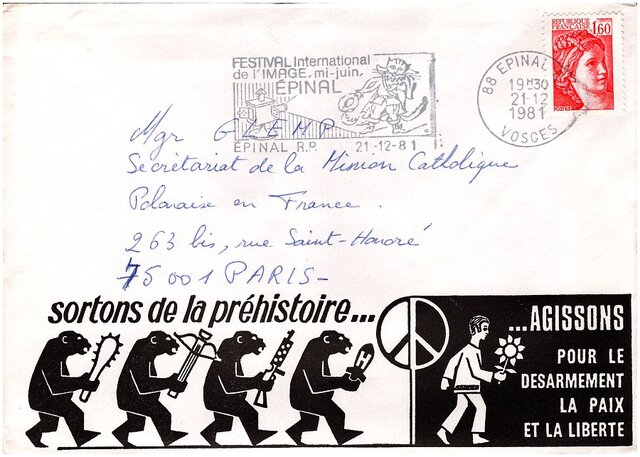 FESTIVAL International
de l'IMAGE. mi-juin.
ÉPINAL
ÉPINAL R.P. 21-12-81
88 EPINAL
19H30
21-12
1981
VOSGES
REPUBLIQUE FRANÇAISE
1,60
Mgr GLEMP
Secrétariat de la Mission Catholique
Polonaise en France.
263 bis, rue Saint-Honoré
75001 PARIS-
sortons de la préhistoire...
...AGISSONS
POUR LE
DESARMEMENT
LA PAIX
ET LA LIBERTE